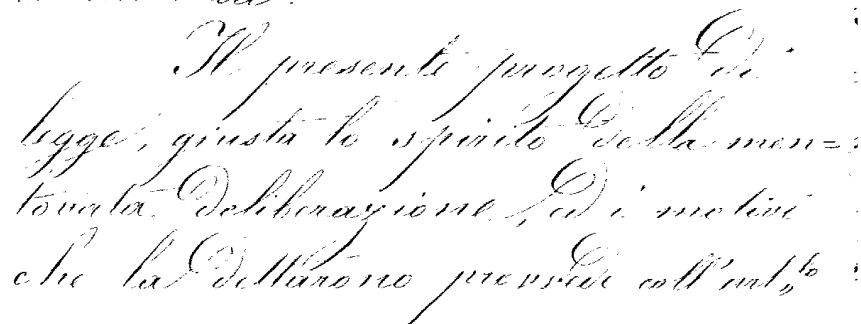 Il presente progetto di
legge, giusta lo spirito della men=
tovata deliberazione, ed i motivi
che la dettarono provvede coll'